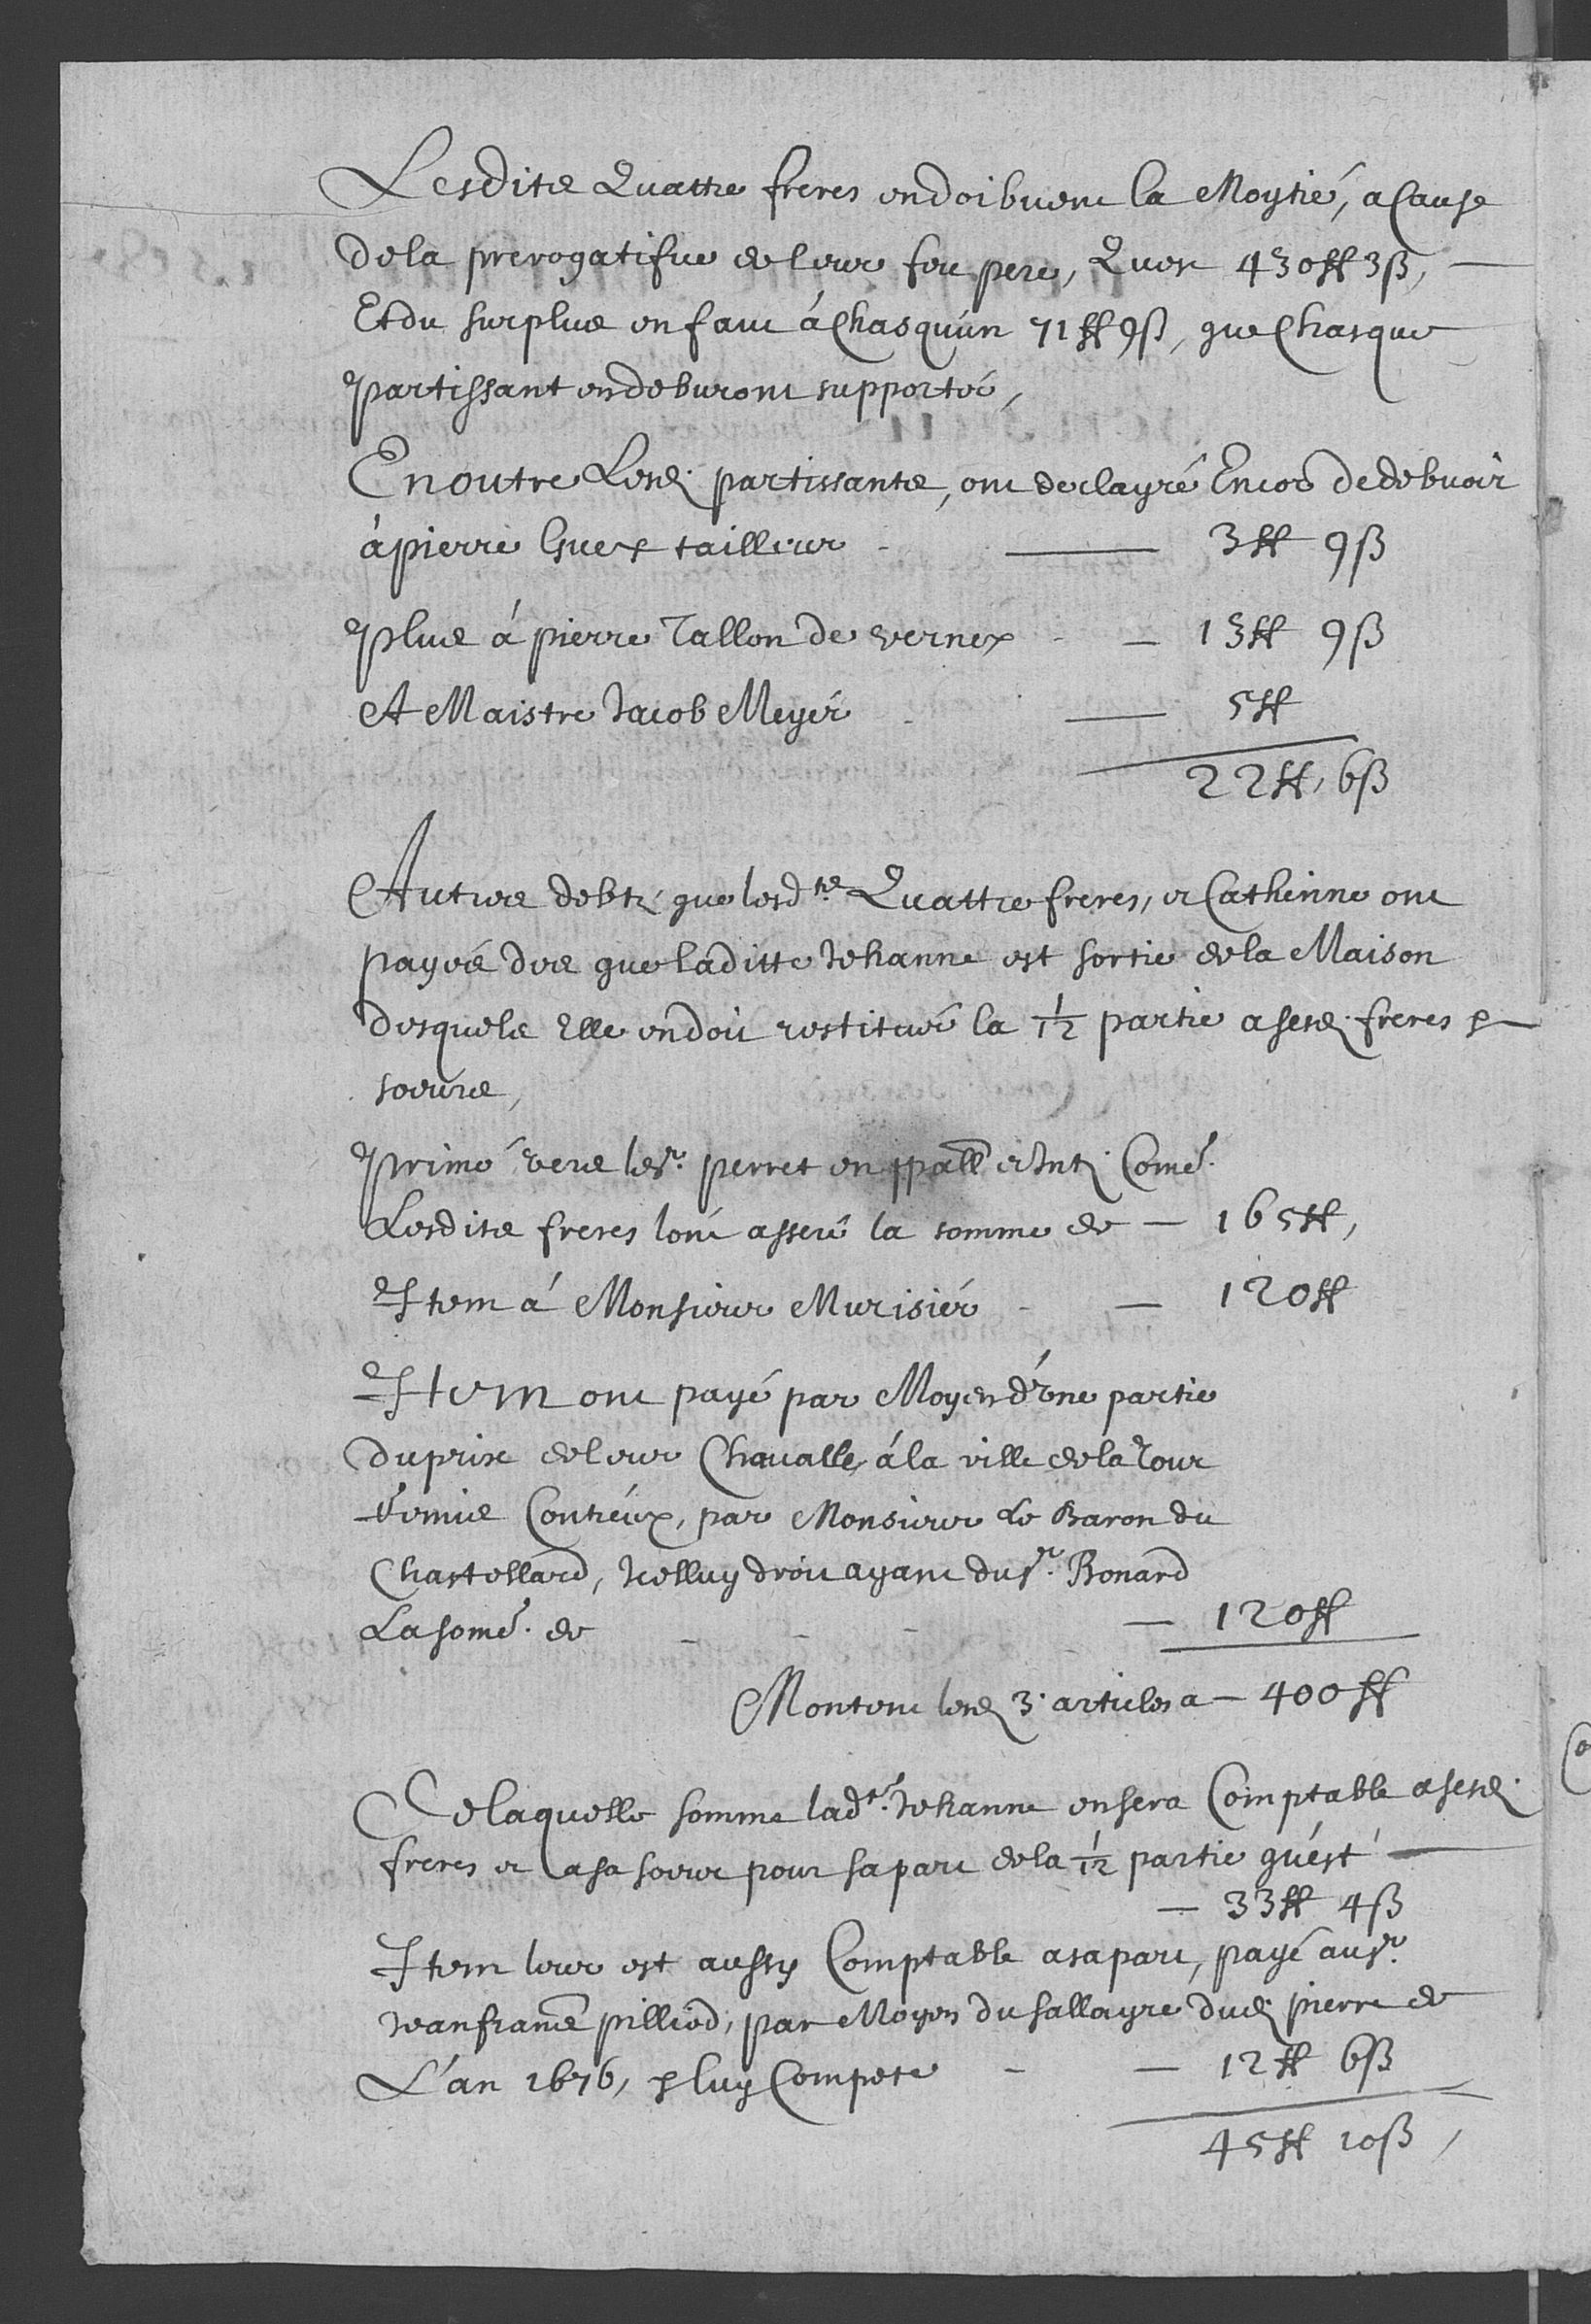 Lesdits Quattre freres en doibvent la Moytié, a Cause
de la prerogatifve de leur feu pere, Quest 430ff 3ß,
Et du surplus en faut à Chasqu'un 71ff 9ß, que Chasque
partissant en debvront supporter,
En outre Lesd. partissants, ont declayré Encor de debvoir
à pierre Guex tailleur - 3ff 9ß
Plus á pierre Tallon de vernex - 13ff 9ß
A Maistre Jacob Meyer - 5ff
22ff, 6ß
Autres debtz que lesdts. Quattre freres, et Catherine ont
payés des que laditte Jehanne est sortie de la Maison
desquels Elle en doit restituer la 1/12 partie a sesd. freres &
soeurs,
Primo vers le sr. perret en ppall et Intz. Comé.
Lesdits freres l'ont asseré la somme de - 165ff,
Item á Monsieur Murisiér - 120ff
Item ont payé par Moyen d'une partie
du prix de leur Chavalle, á la ville de la Tour
Contreux, par Monsieur Le Baron du
Chastellard, Icelluy droit ayant du sr. Bonard
La some. de - 120ff
Montent lesd. 3. articles a - 400ff
De laquelle somme ladte. Jehanne en sera Comptable a sesd.
freres et a sa soeur pour sa part de la 1/12 partie qu'est
- 33ff 4ß
Item leur est aussy Comptable a sa part, payé au sr.
Jean francs pilliod, par Moyen du sallayre dud. pierre de
L'an 1676, & luy Compete - 12ff 6ß
45ff 10ß,